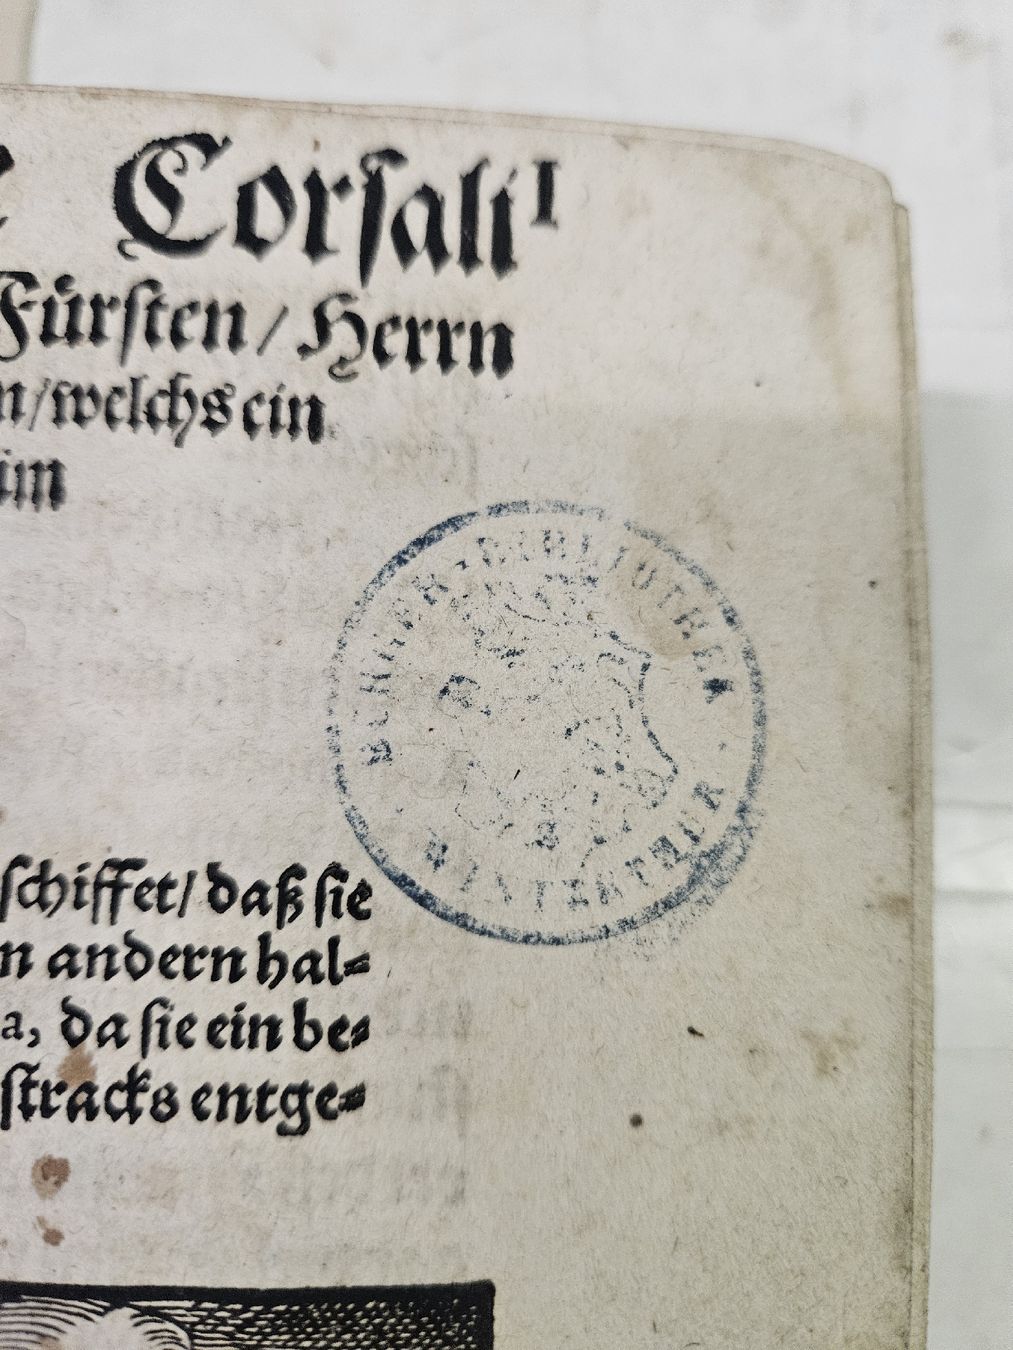 Corſali
I
Fürſten / Herrn
n / welchs ein
im
BÜRGER-BIBLIOTHEK
WINTERTHUR
ſchiffet / daß ſie
n andern hal⸗
a, da ſie ein be⸗
ſtracks entge⸗